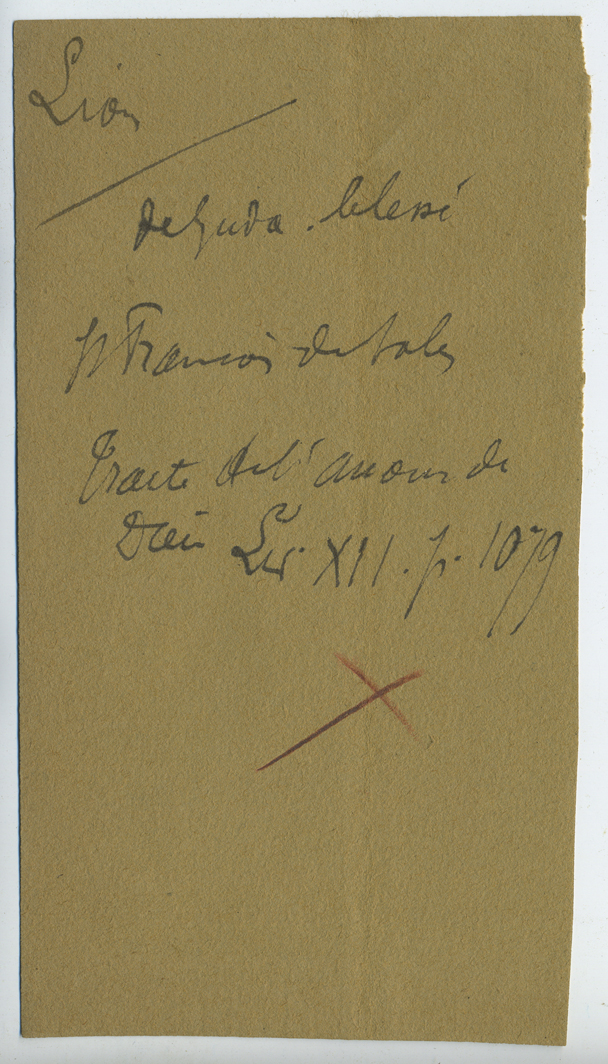 Lion
de Juda. blessé
St François de Sales
Traité de l'amour de
Dieu Liv. XII. p. 1079